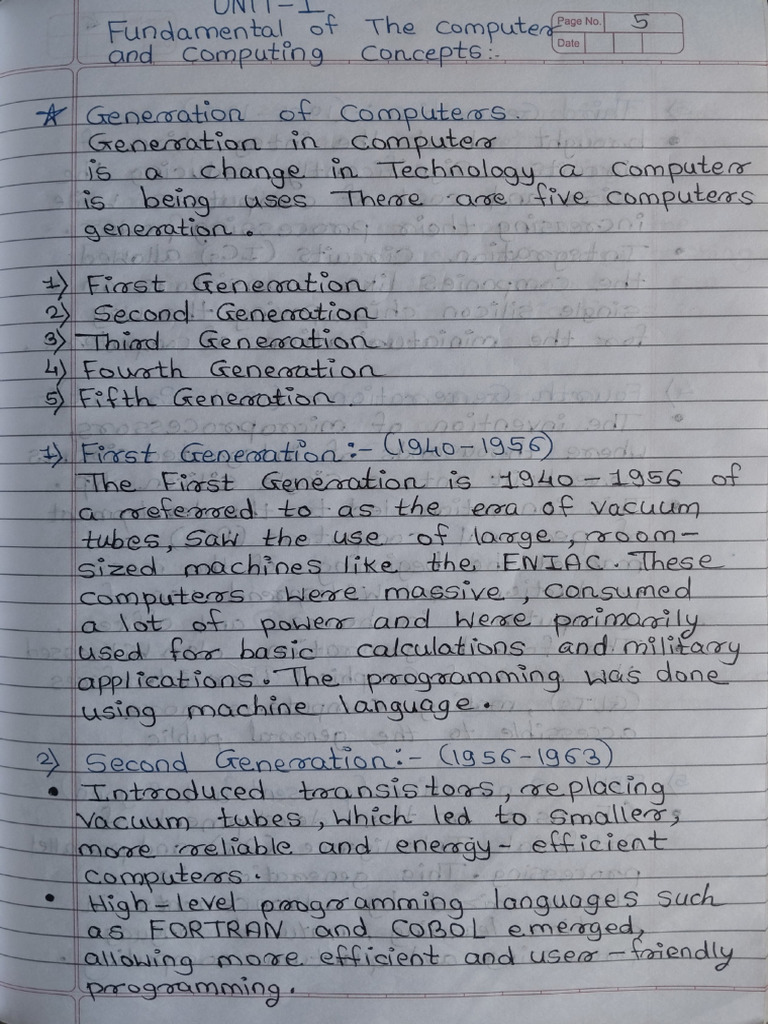 UNIT-I
Fundamental of The computer
and computing concepts:-
Page No. 5
Date
☆ Generation of Computers.
Generation in computer
is a change in Technology a computer
is being uses There are five computers
generation.
1) First Generation
2) Second Generation
3) Third Generation
4) Fourth Generation
5) Fifth Generation.
1) First Generation:- (1940-1956)
The First Generation is 1940-1956 of
a referred to as the era of vacuum
tubes, saw the use of large, room-
sized machines like the ENIAC. These
computers were massive, consumed
a lot of power and were primarily
used for basic calculations and military
applications. The programming was done
using machine language.
2) Second Generation:- (1956-1963)
• Introduced transistors, replacing
vacuum tubes, which led to smaller,
more reliable and energy-efficient
computers.
• High-level programming languages such
as FORTRAN and COBOL emerged,
allowing more efficient and user-friendly
programming.